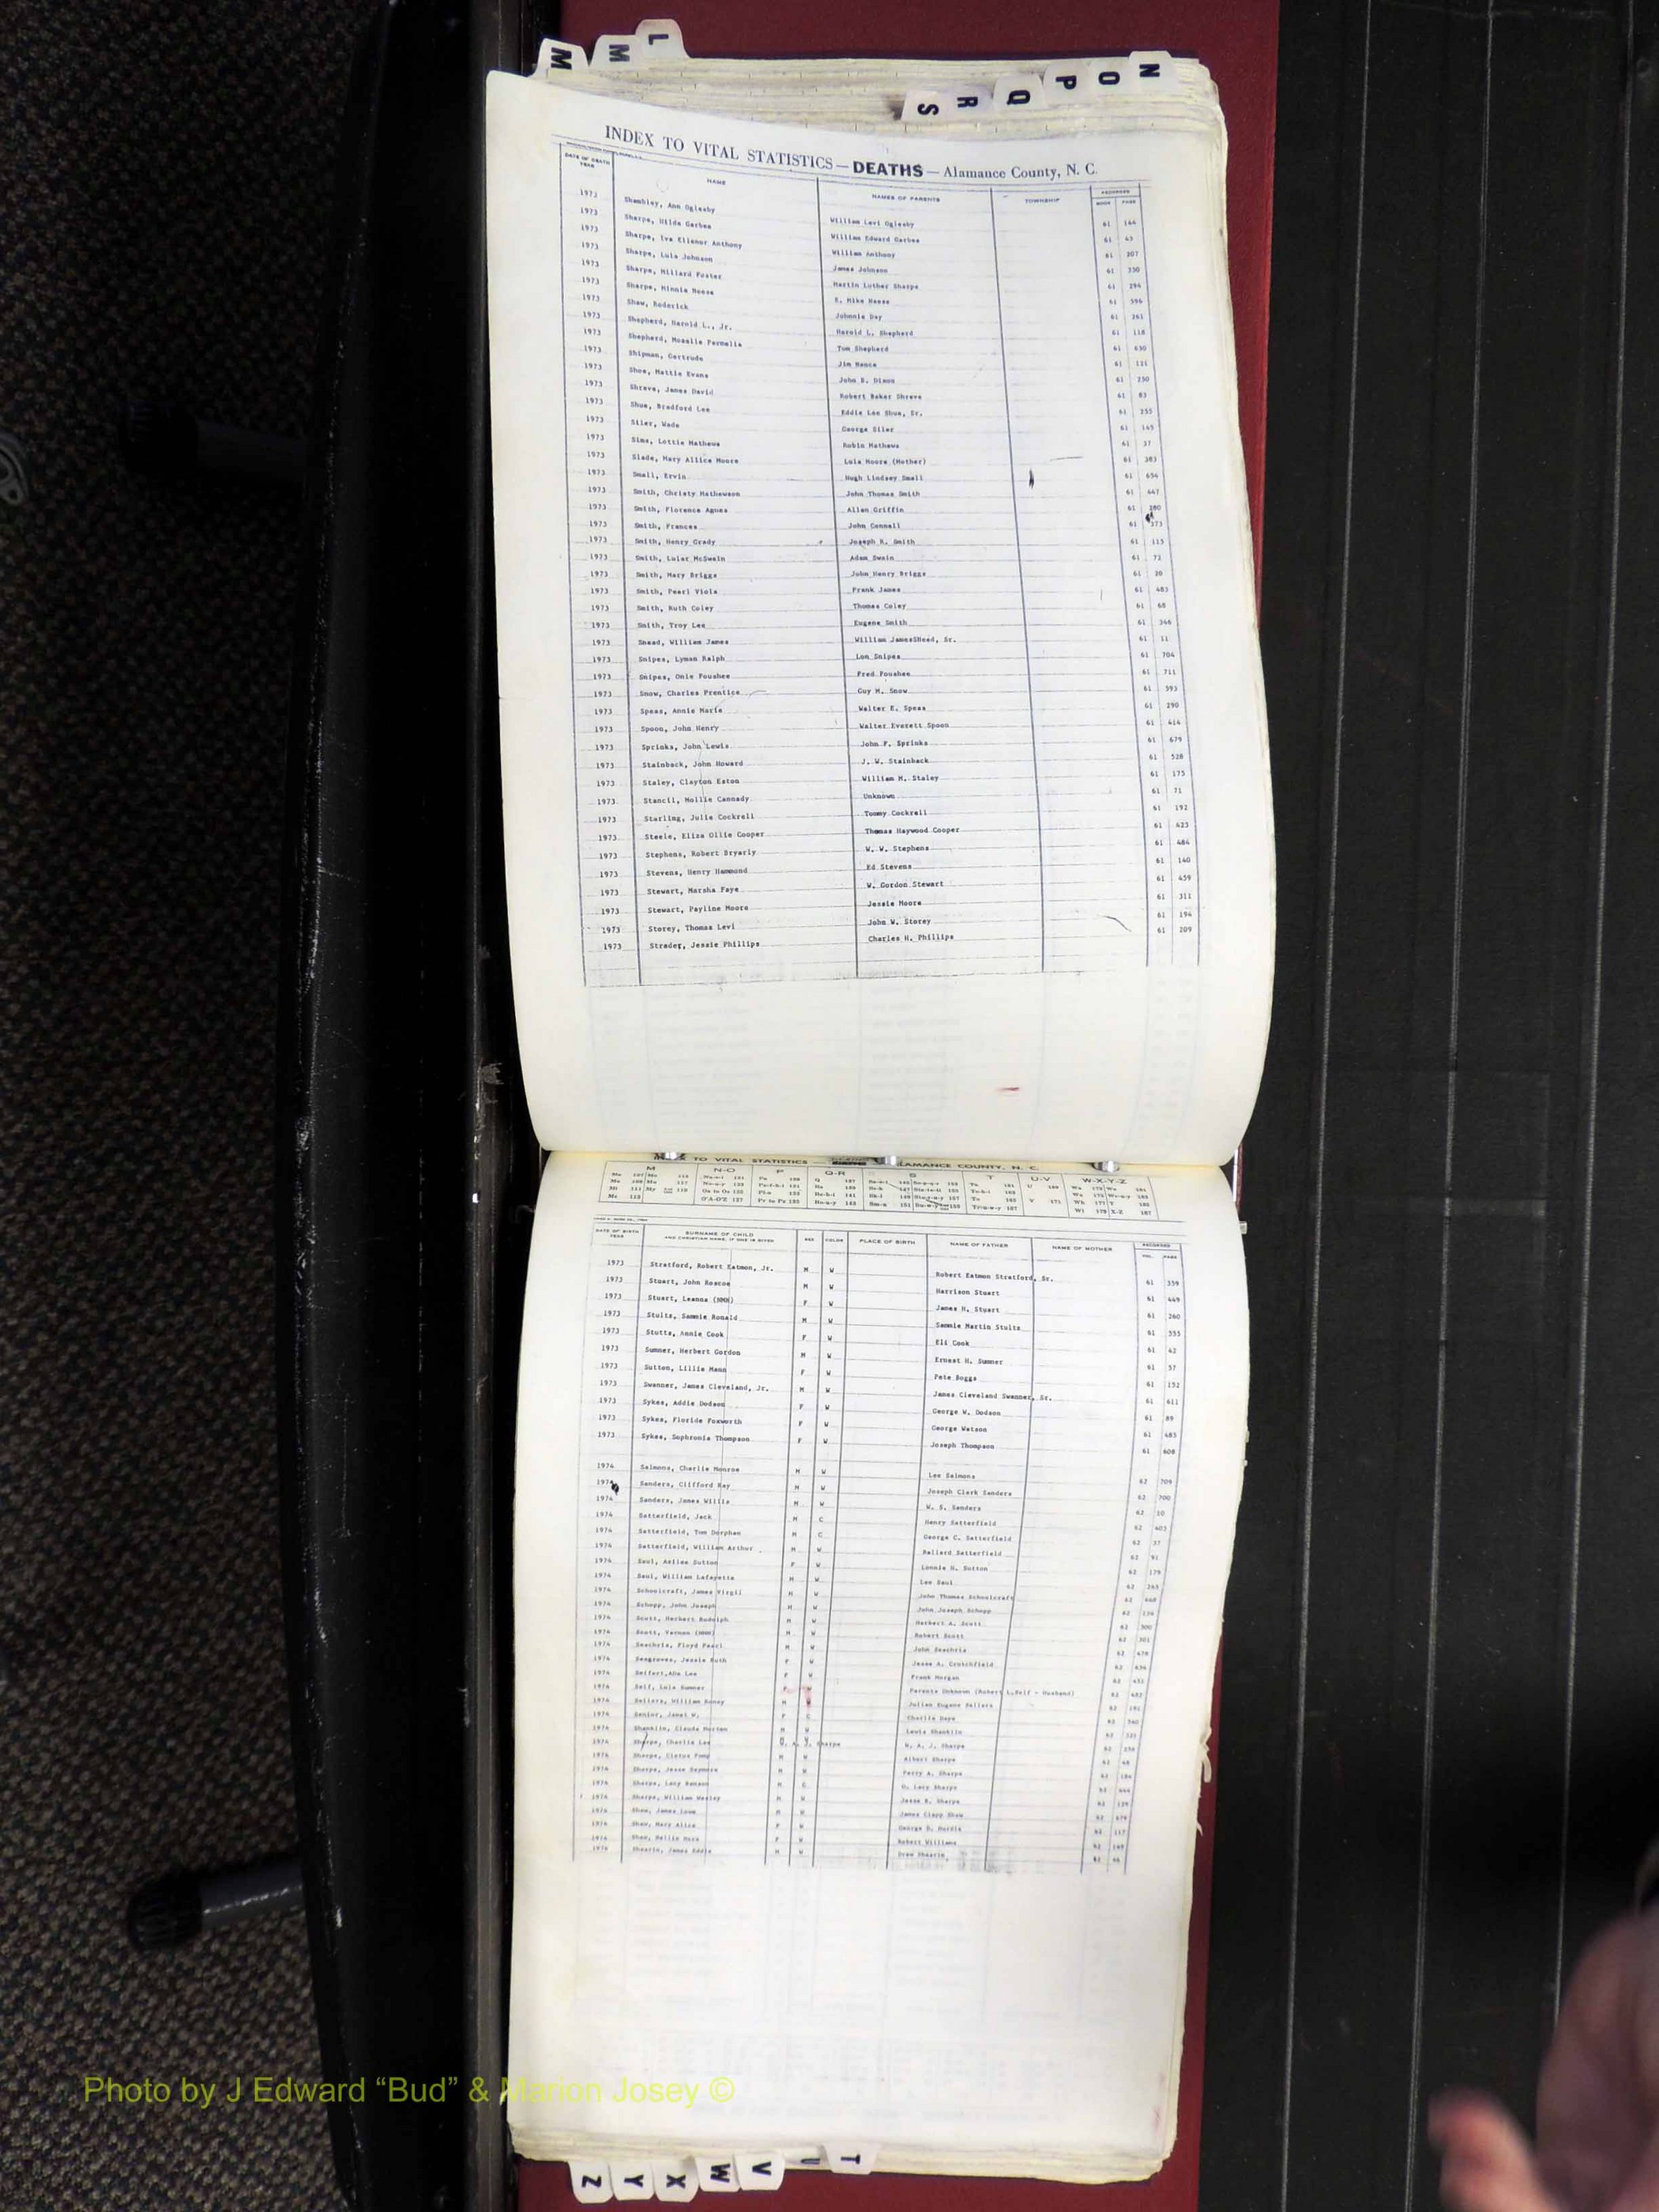 L
M
M
N
O
P
Q
R
S
INDEX TO VITAL STATISTICS — DEATHS — Alamance County, N. C.
DATE OF DEATH YEAR NAME NAMES OF PARENTS TOWNSHIP RECORDED BOOK PAGE
1973 Shambley, Ann Oglesby William Levi Oglesby 61 144
1973 Sharpe, Hilda Garbee William Edward Garbee 61 43
1973 Sharpe, Iva Elienor Anthony William Anthony 61 207
1973 Sharpe, Lula Johnson James Johnson 61 330
1973 Sharpe, Millard Foster Martin Luther Sharpe 61 294
1973 Sharpe, Minnie Neese E. Mike Neese 61 596
1973 Shaw, Roderick Johnnie Day 61 261
1973 Shepherd, Harold L., Jr. Harold L. Shepherd 61 118
1973 Shepherd, Mosalia Permelia Tom Shepherd 61 630
1973 Shipman, Gertrude Jim Nance 61 121
1973 Shoe, Mattie Evans John E. Dixon 61 250
1973 Shreve, James David Robert Baker Shreve 61 83
1973 Shue, Bradford Lee Eddie Lee Shue, Sr. 61 255
1973 Siler, Wade George Siler 61 165
1973 Sims, Lottie Mathews Robin Mathews 61 37
1973 Slade, Mary Allice Moore Lula Moore (Mother) 61 383
1973 Small, Ervin Hugh Lindsey Small 61 656
1973 Smith, Christy Mathewson John Thomas Smith 61 647
1973 Smith, Florence Agnes Allen Griffin 61 280
1973 Smith, Frances John Connell 61 373
1973 Smith, Henry Grady Joseph R. Smith 61 115
1973 Smith, Lular McSwain Adam Swain 61 72
1973 Smith, Mary Briggs John Henry Briggs 61 20
1973 Smith, Pearl Viola Frank James 61 483
1973 Smith, Ruth Coley Thomas Coley 61 68
1973 Smith, Troy Lee Eugene Smith 61 346
1973 Snead, William James William JamesSNeed, Sr. 61 11
1973 Snipes, Lyman Ralph Lon Snipes 61 704
1973 Snipes, Onie Foushee Fred Foushee 61 711
1973 Snow, Charles Prentice Guy M. Snow 61 593
1973 Speas, Annie Marie Walter E. Speas 61 290
1973 Spoon, John Henry Walter Everett Spoon 61 414
1973 Sprinks, John Lewis John F. Sprinks 61 679
1973 Stainback, John Howard J. W. Stainback 61 528
1973 Staley, Clayton Eaton William M. Staley 61 175
1973 Stancil, Mollie Cannady Unknown 61 71
1973 Starling, Julie Cockrell Tommy Cockrell 61 192
1973 Steele, Eliza Ollie Cooper Thomas Haywood Cooper 61 423
1973 Stephens, Robert Bryarly W. W. Stephens 61 484
1973 Stevens, Henry Hammond Ed Stevens 61 140
1973 Stewart, Marsha Faye W. Gordon Stewart 61 459
1973 Stewart, Payline Moore Jessie Moore 61 311
1973 Storey, Thomas Levi John W. Storey 61 194
1973 Strader, Jessie Phillips Charles H. Phillips 61 209
INDEX TO VITAL STATISTICS ALAMANCE COUNTY, N. C.
M N-O P Q-R S T U-V W-X-Y-Z
DATE OF BIRTH YEAR SURNAME OF CHILD AND CHRISTIAN NAME, IF ONE IS GIVEN SEX COLOR PLACE OF BIRTH NAME OF FATHER NAME OF MOTHER RECORDED VOL. PAGE
1973 Stratford, Robert Eatmon, Jr. M W Robert Eatmon Stratford, Sr. 61 339
1973 Stuart, John Roscoe M W Harrison Stuart 61 449
1973 Stuart, Leanna (NMN) F W James H. Stuart 61 260
1973 Stults, Sammie Ronald M W Sammie Martin Stults 61 355
1973 Stutts, Annie Cook F W Eli Cook 61 42
1973 Sumner, Herbert Gordon M W Ernest H. Sumner 61 57
1973 Sutton, Lillie Mann F W Pete Boggs 61 152
1973 Swanner, James Cleveland, Jr. M W James Cleveland Swanner, Sr. 61 611
1973 Sykes, Addie Dodson F W George W. Dodson 61 89
1973 Sykes, Floride Foxworth F W George Watson 61 485
1973 Sykes, Sophronia Thompson F W Joseph Thompson 61 608
1974 Salmons, Charlie Monroe M W Lee Salmons 62 709
1974 Sanders, Clifford Ray M W Joseph Clark Sanders 62 700
1974 Sanders, James Willis M W W. S. Sanders 62 10
1974 Satterfield, Jack M C Henry Satterfield 62 403
1974 Satterfield, Tom Dorphan M C George C. Satterfield 62 37
1974 Satterfield, William Arthur M W Ballard Satterfield 62 91
1974 Saul, Axilee Sutton F W Lonnie H. Sutton 62 179
1974 Saul, William Lafayette M W Lee Saul 62 265
1974 Schoolcraft, James Virgil M W John Thomas Schoolcraft 62 448
1974 Schopp, John Joseph M W John Joseph Schopp 62 134
1974 Scott, Herbert Rudolph M W Herbert A. Scott 62 300
1974 Scott, Vernon (NMN) M W Robert Scott 62 301
1974 Seachris, Floyd Pearl M W John Seachris 62 478
1974 Seagroves, Jessie Ruth F W Jesse A. Crutchfield 62
1974 Seifert, Abe Lee F W Frank Morgan 62
1974 Self, Lula Sumner F W Parents Unknown (Robert L. Self - Husband) 62
1974 Sellars, William Roney M W Julian Eugene Sellars 62
1974 Senior, Janet W. F C Charlie Daye 62
1974 Shanklin, Claude Morten M W Lewis Shanklin 62
1974 Sharpe, Charlie Lee W. A. J. Sharpe W. A. J. Sharpe 62
1974 Sharpe, Cletus Pomp M W Albert Sharpe
1974 Sharpe, Jesse Seymore M W Perry A. Sharpe 62
1974 Sharpe, Lacy Benson M G. Lacy Sharpe
1974 Sharpe, William Wesley M W Jesse B. Sharpe
1974 Shaw, James Lowe M W James Clapp Shaw 62
1974 Shaw, Mary Alice F W George D. Hardin
1974 Shaw, Mellie Mara F W Robert Williams 62
1974 Shearin, James Eddie M W Drew Shearin
Photo by J Edward “Bud” & Marion Josey ©
Z
Y
X
W
V
U
T